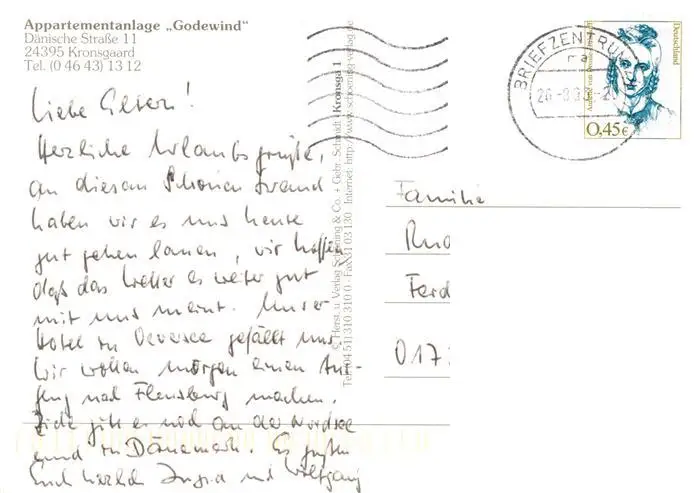 Appartementanlage „Godewind“
Dänische Straße 11
24395 Kronsgaard
Tel. (0 46 43) 13 12
Liebe Eltern!
Herzliche Urlaubsgrüße,
an diesem schönen Strand
haben wir es uns heute
gut gehen lassen, wir hoffen
daß das Wetter es weiter gut
mit uns meint. Unser
Hotel in Oeversee gefällt uns.
Wir wollen morgen einen Aus-
flug nach Flensburg machen.
Ziele gibt es noch an der Nordsee
und in Dänemark. Es grüßen
Euch herzlich Ingrid und Wolfgang
© Herst. u. Verlag Schöning & Co. + Gebr. Schmidt · Kronsga 1
Tel. (04 51) 310 310 0 · Fax 31 03 130 Internet: http://www.schoening-verlag.de
BRIEFZENTRUM
Deutschland
0,45€
Familie
Ferd
017